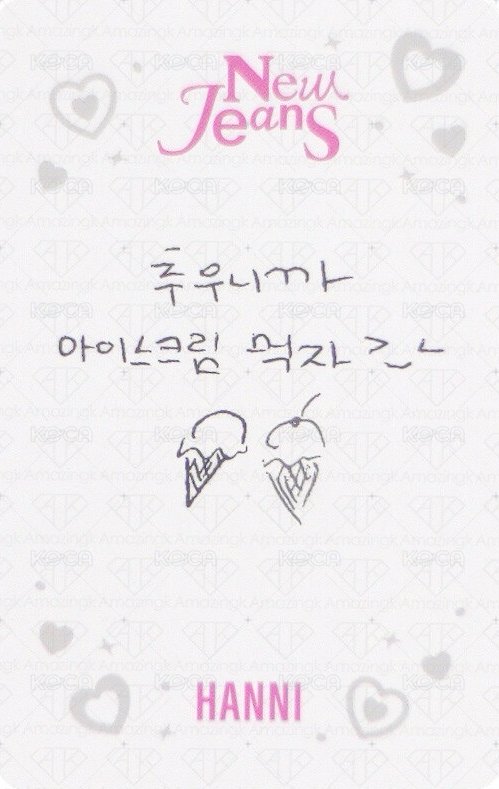 New
Jeans
추우니까
아이스크림 먹자 >_ㄴ
HANNI